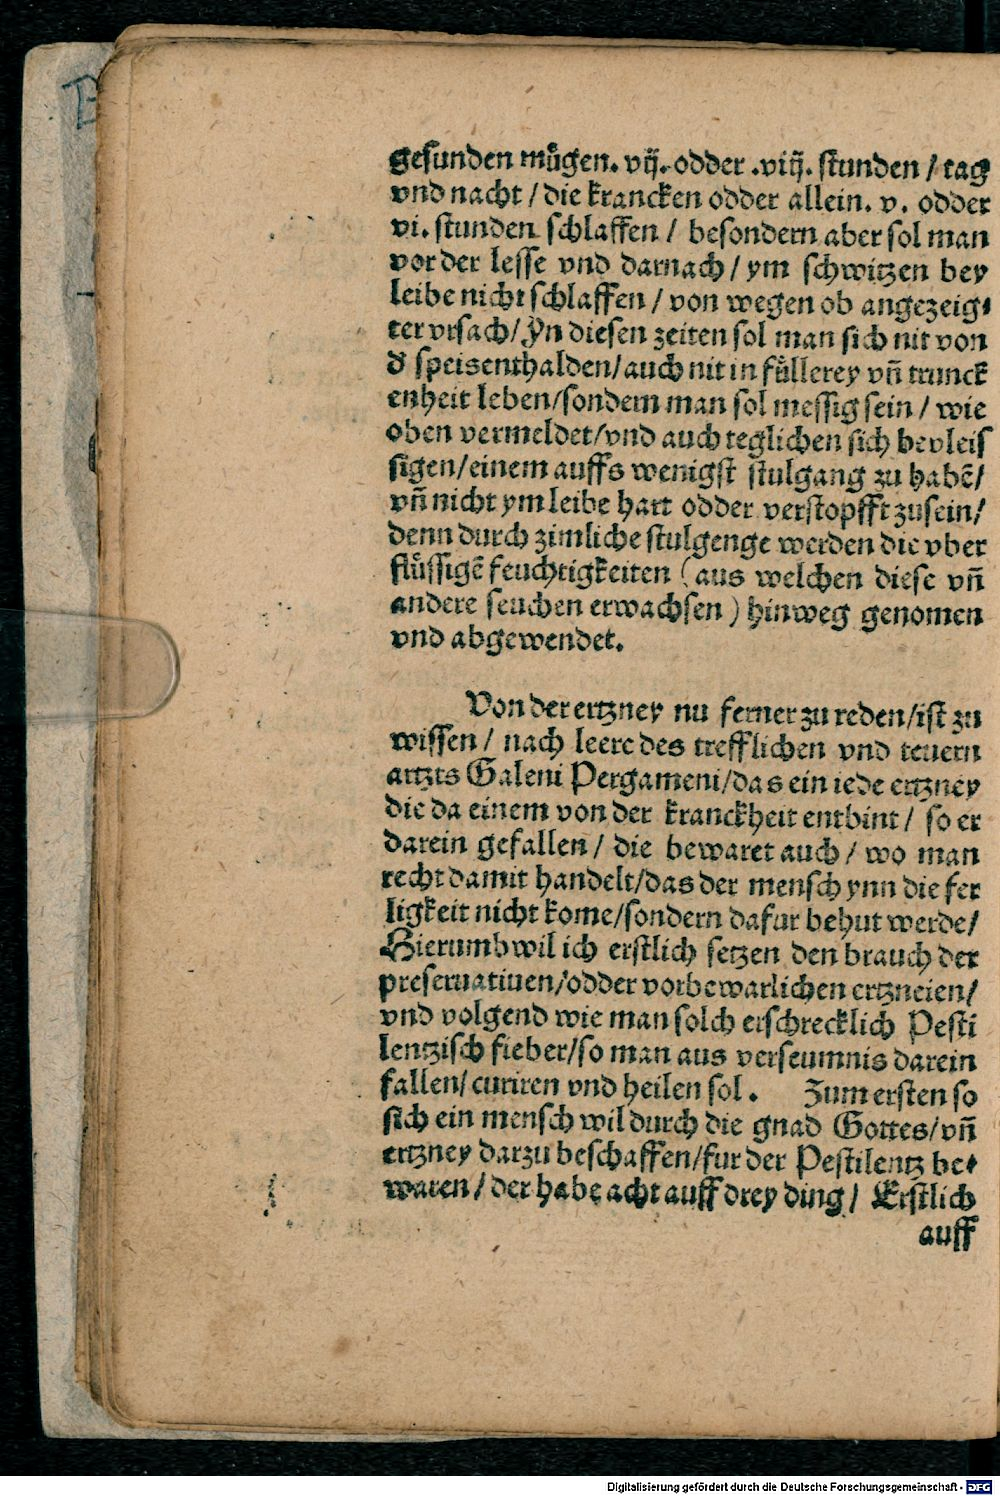 gesunden mügen. vij. odder .viij. stunden / tag
vnd nacht / die krancken odder allein. v. odder
vi. stunden schlaffen / besondern aber sol man
vor der lesse vnd darnach / ym schwitzen bey
leibe nicht schlaffen / von wegen ob angezeig⸗
ter vrsach / Yn diesen zeiten sol man sich nit von
d̓ speis enthalden / auch nit in füllerey vñ trunck
enheit leben / sondern man sol messig sein / wie
oben vermeldet / vnd auch teglichen sich bevleis
sigen / einem auffs wenigst stulgang zu habē /
vñ nicht ym leibe hart odder verstopfft zu sein /
denn durch zimliche stulgenge werden die vber
flüssigē feuchtigkeiten ( aus welchen diese vñ
andere seuchen erwachsen ) hinweg genomen
vnd abgewendet.
Von der ertzney nu ferner zu reden / ist zu
wissen / nach leere des trefflichen vnd teuern
artzts Galeni Pergameni / das ein iede ertzney
die da einem von der kranckheit entbint / so er
darein gefallen / die bewaret auch / wo man
recht damit handelt / das der mensch ynn die fer
ligkeit nicht kome / sondern dafur behut werde /
Hierumb wil ich erstlich setzen den brauch der
preseruatiuen / odder vorbewarlichen ertzneien /
vnd volgend wie man solch erschrecklich Pesti
lentzisch fieber / so man aus verseumnis darein
fallen / curiren vnd heilen sol. Zum ersten so
sich ein mensch wil durch die gnad Gottes / vñ
ertzney darzu beschaffen / fur der Pestilentz be⸗
waren / der habe acht auff drey ding / Erstlich
auff
Digitalisierung gefördert durch die Deutsche Forschungsgemeinschaft - DFG